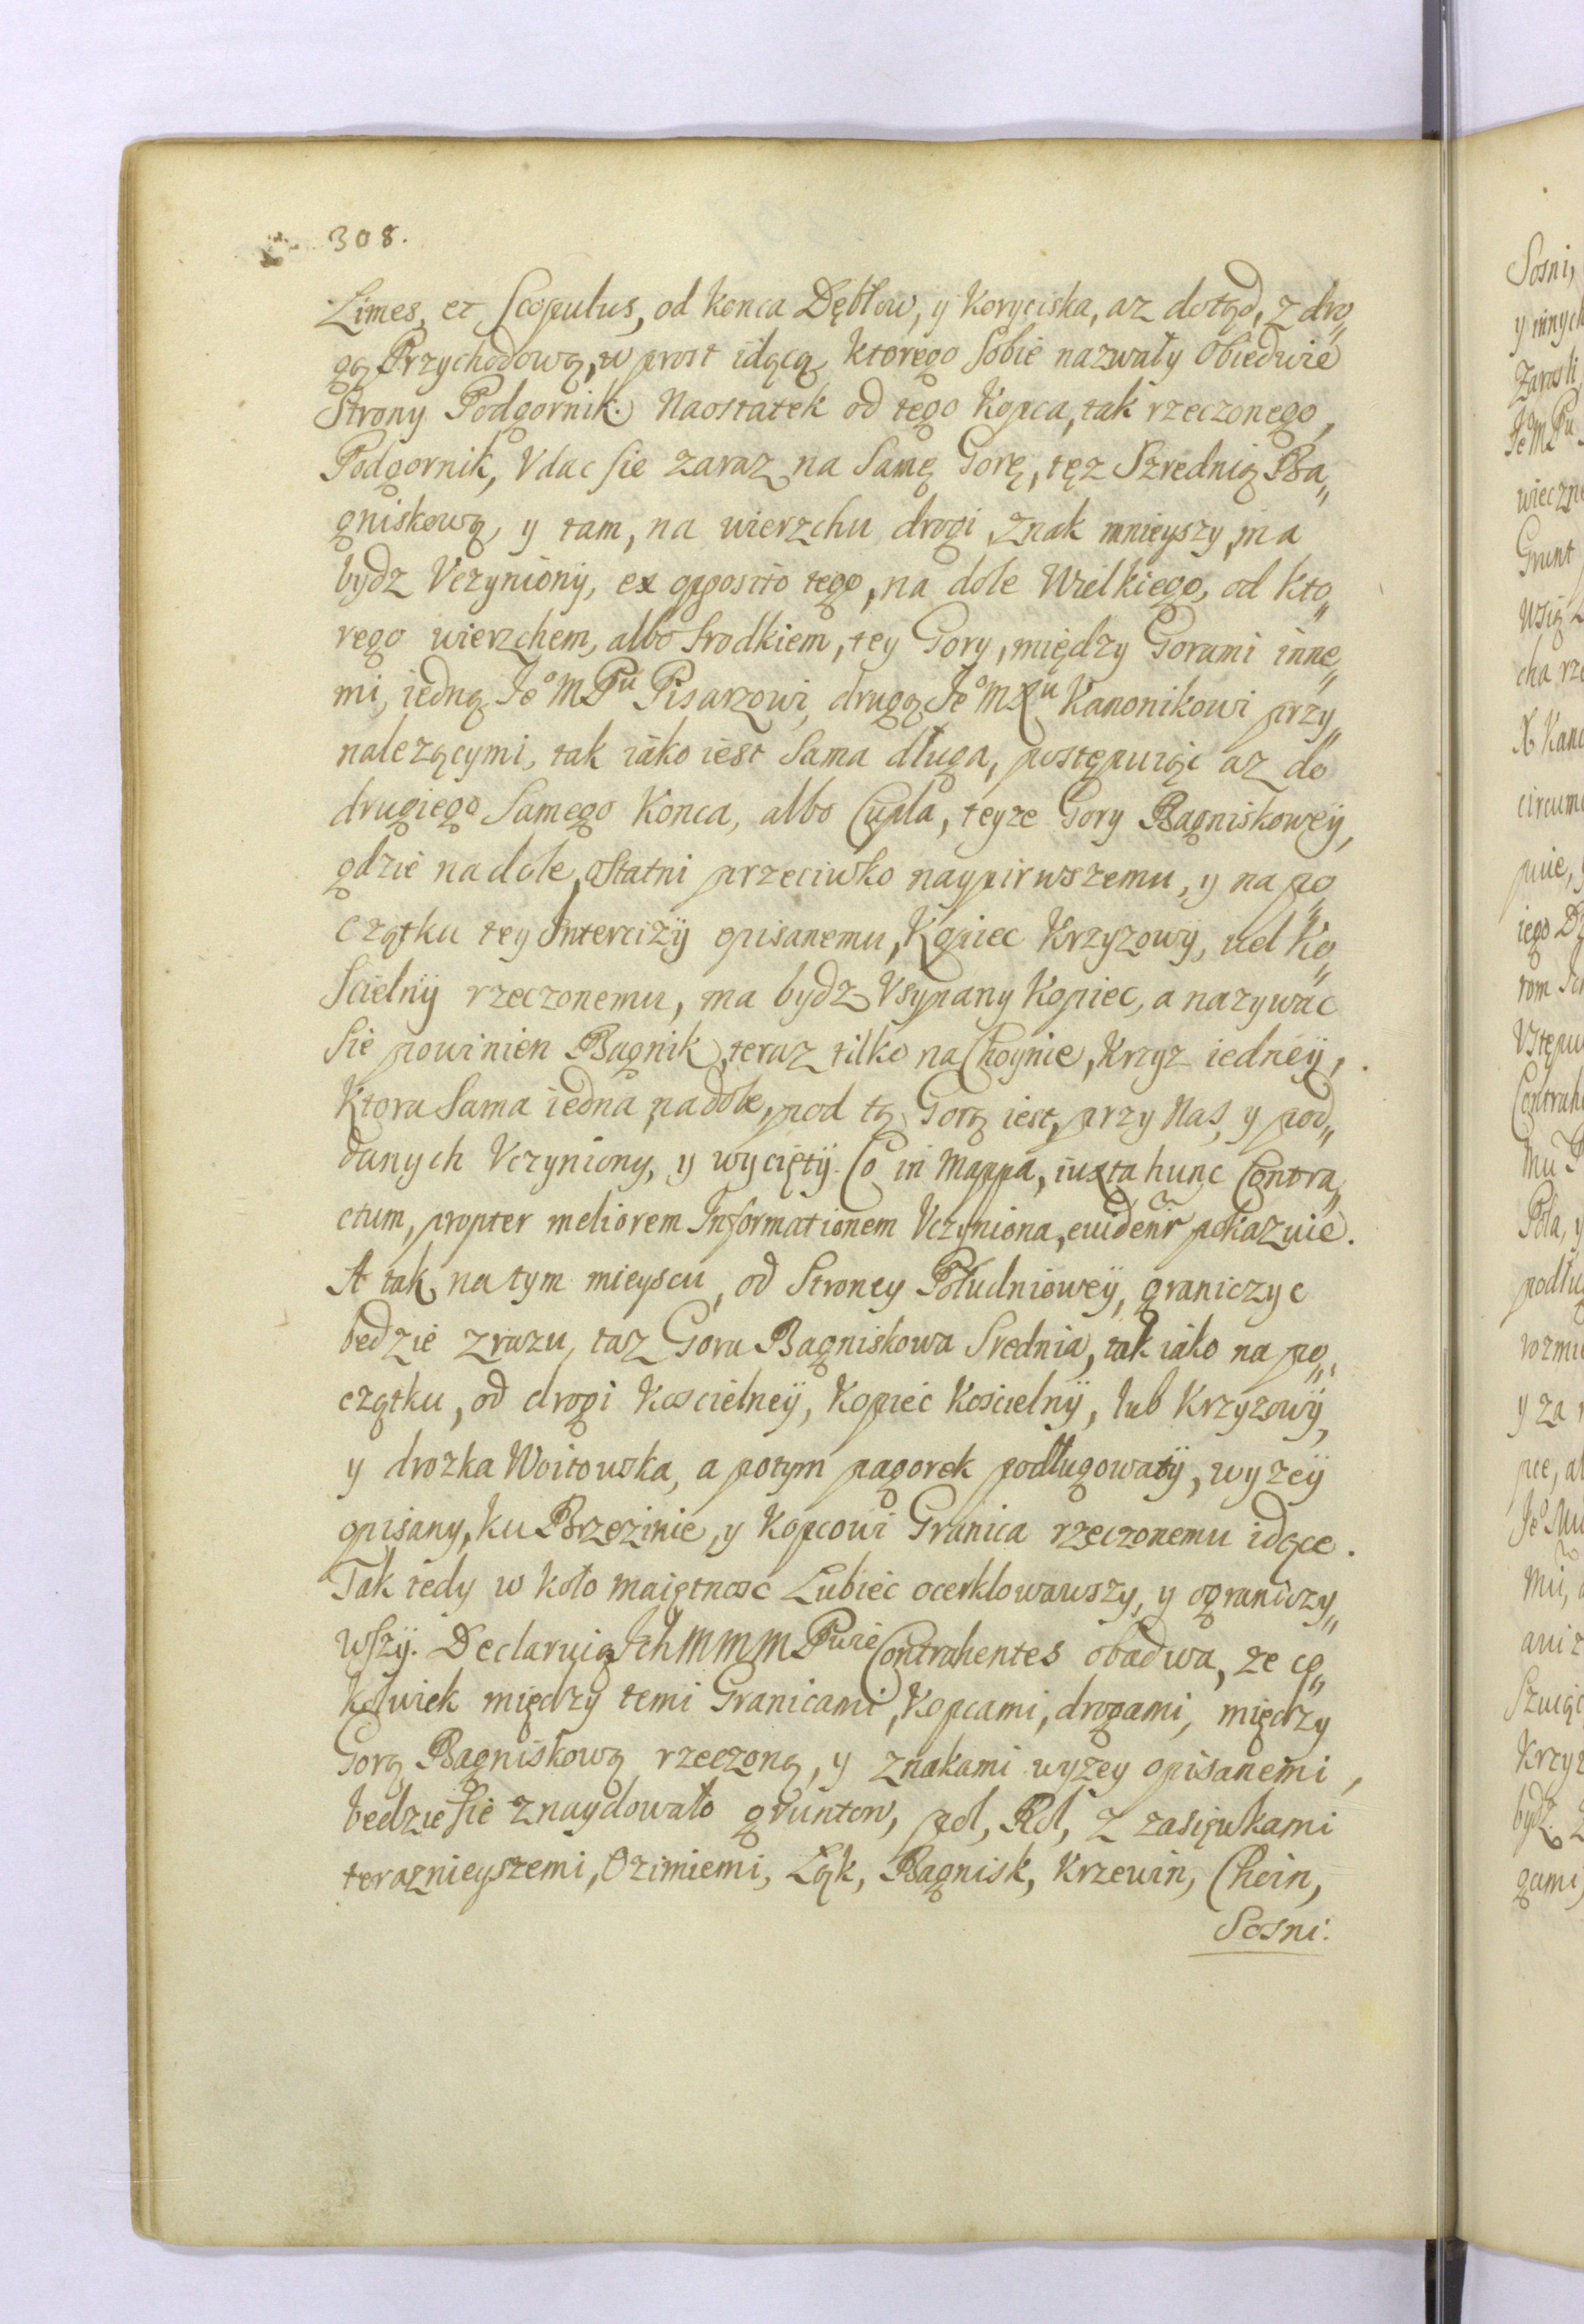 308.
Limes, et Scopulus, od konca Dębłow, y Koryciska, az dotąd, z dro„
gą Przychodową, w prost idącą, ktorego Sobie nazwały obiedwie
Strony Podgornik. Naostatek od tego Kopca, tak rzeczonego,
Podgornik, Vdac sie zaraz na Samę Gorę, tęz Szrednią Ba„
gniskową, y tam, na wierzchu drogi, znak mnieyszy, ma
bydz Vczyniony, ex opposito tego, na dole Wielkiego, od kto„
rego wierzchem, albo Srodkiem, tey Gory, między Gorami inne„
mi, iedną Jeº M Pu Pisarzowi, drugą Jeº M Xu Kanonikowi przy„
nalezącymi, tak iako iest Sama długa, postępuiąc az do
drugiego Samego Konca, albo Cupla, teyze Gory Bagniskowey,
gdzie na dole, ostatni przeciwko naypirwszemu, y na po„
czątku tey Intercizÿ opisanemu, Kopiec Krzyzowÿ, uel Ko„
Scielnÿ rzeczonemu, ma bydz Vsypany Kopiec, a nazywac
Sie powinien Bagnik, teraz tilko na Choynie, Krzyz iedneÿ,
Ktora Sama iedna na dole, pod tą Gorą iest, przy Nas, y pod„
danych Vczyniony, y wyciętÿ. Co in Mappa, iuxta hunc Contra„
ctum, propter meliorem Informationem Vczyniona, euidentr pokazuie.
A tak na tym mieyscu, od Stroney Południoweÿ, graniczyc
bedzie zrazu, taz Gora Bagniskowa Srednia, tak iako na po„
czątku, od drogi Koscielneÿ, Kopiec Koscielnÿ, lub Krzyzowÿ,
y drozka Woitowska, a potym pagorek podługowatÿ, wyzeÿ
opisany, ku Brzezinie, y Kopcowi Granica rzeczonemu idące.
Tak tedy w koło maiętnosc Lubiec ocerklowawszy, y ograniczy„
wszÿ. Declaruią Ich M M M Purie Contrahentes obadwa, ze co„
kolwiek między temi Granicami, Kopcami, drogami, między
Gorą Bagniskową rzeczoną, y znakami wyzey opisanemi,
bedzie sie znaydowało gruntow, pol, Rol, z zasiewkami
teraznieyszemi, Ozimiemi, Łąk, Bagnisk, Krzewin, Choin,
Sosni.